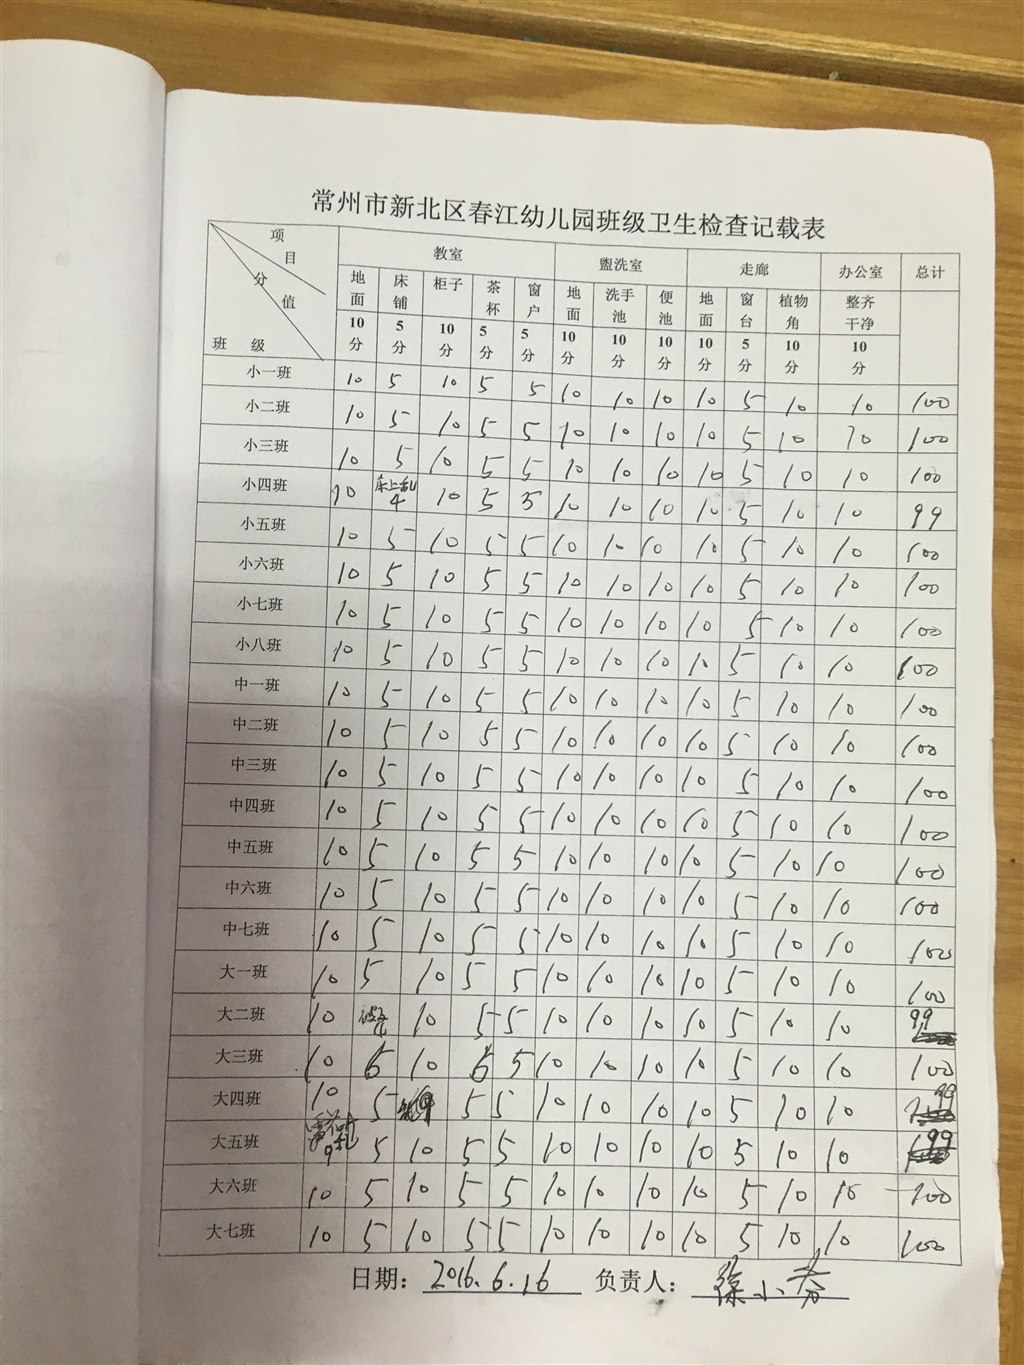 常州市新北区春江幼儿园班级卫生检查记载表
项目 分值 班级 教室 盥洗室 走廊 办公室 总计
地面 床铺 柜子 茶杯 窗户 地面 洗手池 便池 地面 窗台 植物角 整齐干净
10分 5分 10分 5分 5分 10分 10分 10分 10分 5分 10分 10分
小一班 10 5 10 5 5 10 10 10 10 5 10 10 100
小二班 10 5 10 5 5 10 10 10 10 5 10 10 100
小三班 10 5 10 5 5 10 10 10 10 5 10 10 100
小四班 10 床上乱 4 10 5 5 10 10 10 10 5 10 10 99
小五班 10 5 10 5 5 10 10 10 10 5 10 10 100
小六班 10 5 10 5 5 10 10 10 10 5 10 10 100
小七班 10 5 10 5 5 10 10 10 10 5 10 10 100
小八班 10 5 10 5 5 10 10 10 10 5 10 10 100
中一班 10 5 10 5 5 10 10 10 10 5 10 10 100
中二班 10 5 10 5 5 10 10 10 10 5 10 10 100
中三班 10 5 10 5 5 10 10 10 10 5 10 10 100
中四班 10 5 10 5 5 10 10 10 10 5 10 10 100
中五班 10 5 10 5 5 10 10 10 10 5 10 10 100
中六班 10 5 10 5 5 10 10 10 10 5 10 10 100
中七班 10 5 10 5 5 10 10 10 10 5 10 10 100
大一班 10 5 10 5 5 10 10 10 10 5 10 10 100
大二班 10 10 5 5 10 10 10 10 5 10 10 99
大三班 10 5 10 5 5 10 10 10 10 5 10 10 100
大四班 10 5 5 5 10 10 10 10 5 10 10 99
大五班 9 5 10 5 5 10 10 10 10 5 10 10 99
大六班 10 5 10 5 5 10 10 10 10 5 10 10 100
大七班 10 5 10 5 5 10 10 10 10 5 10 10 100
日期：2016.6.16 负责人：徐小芬